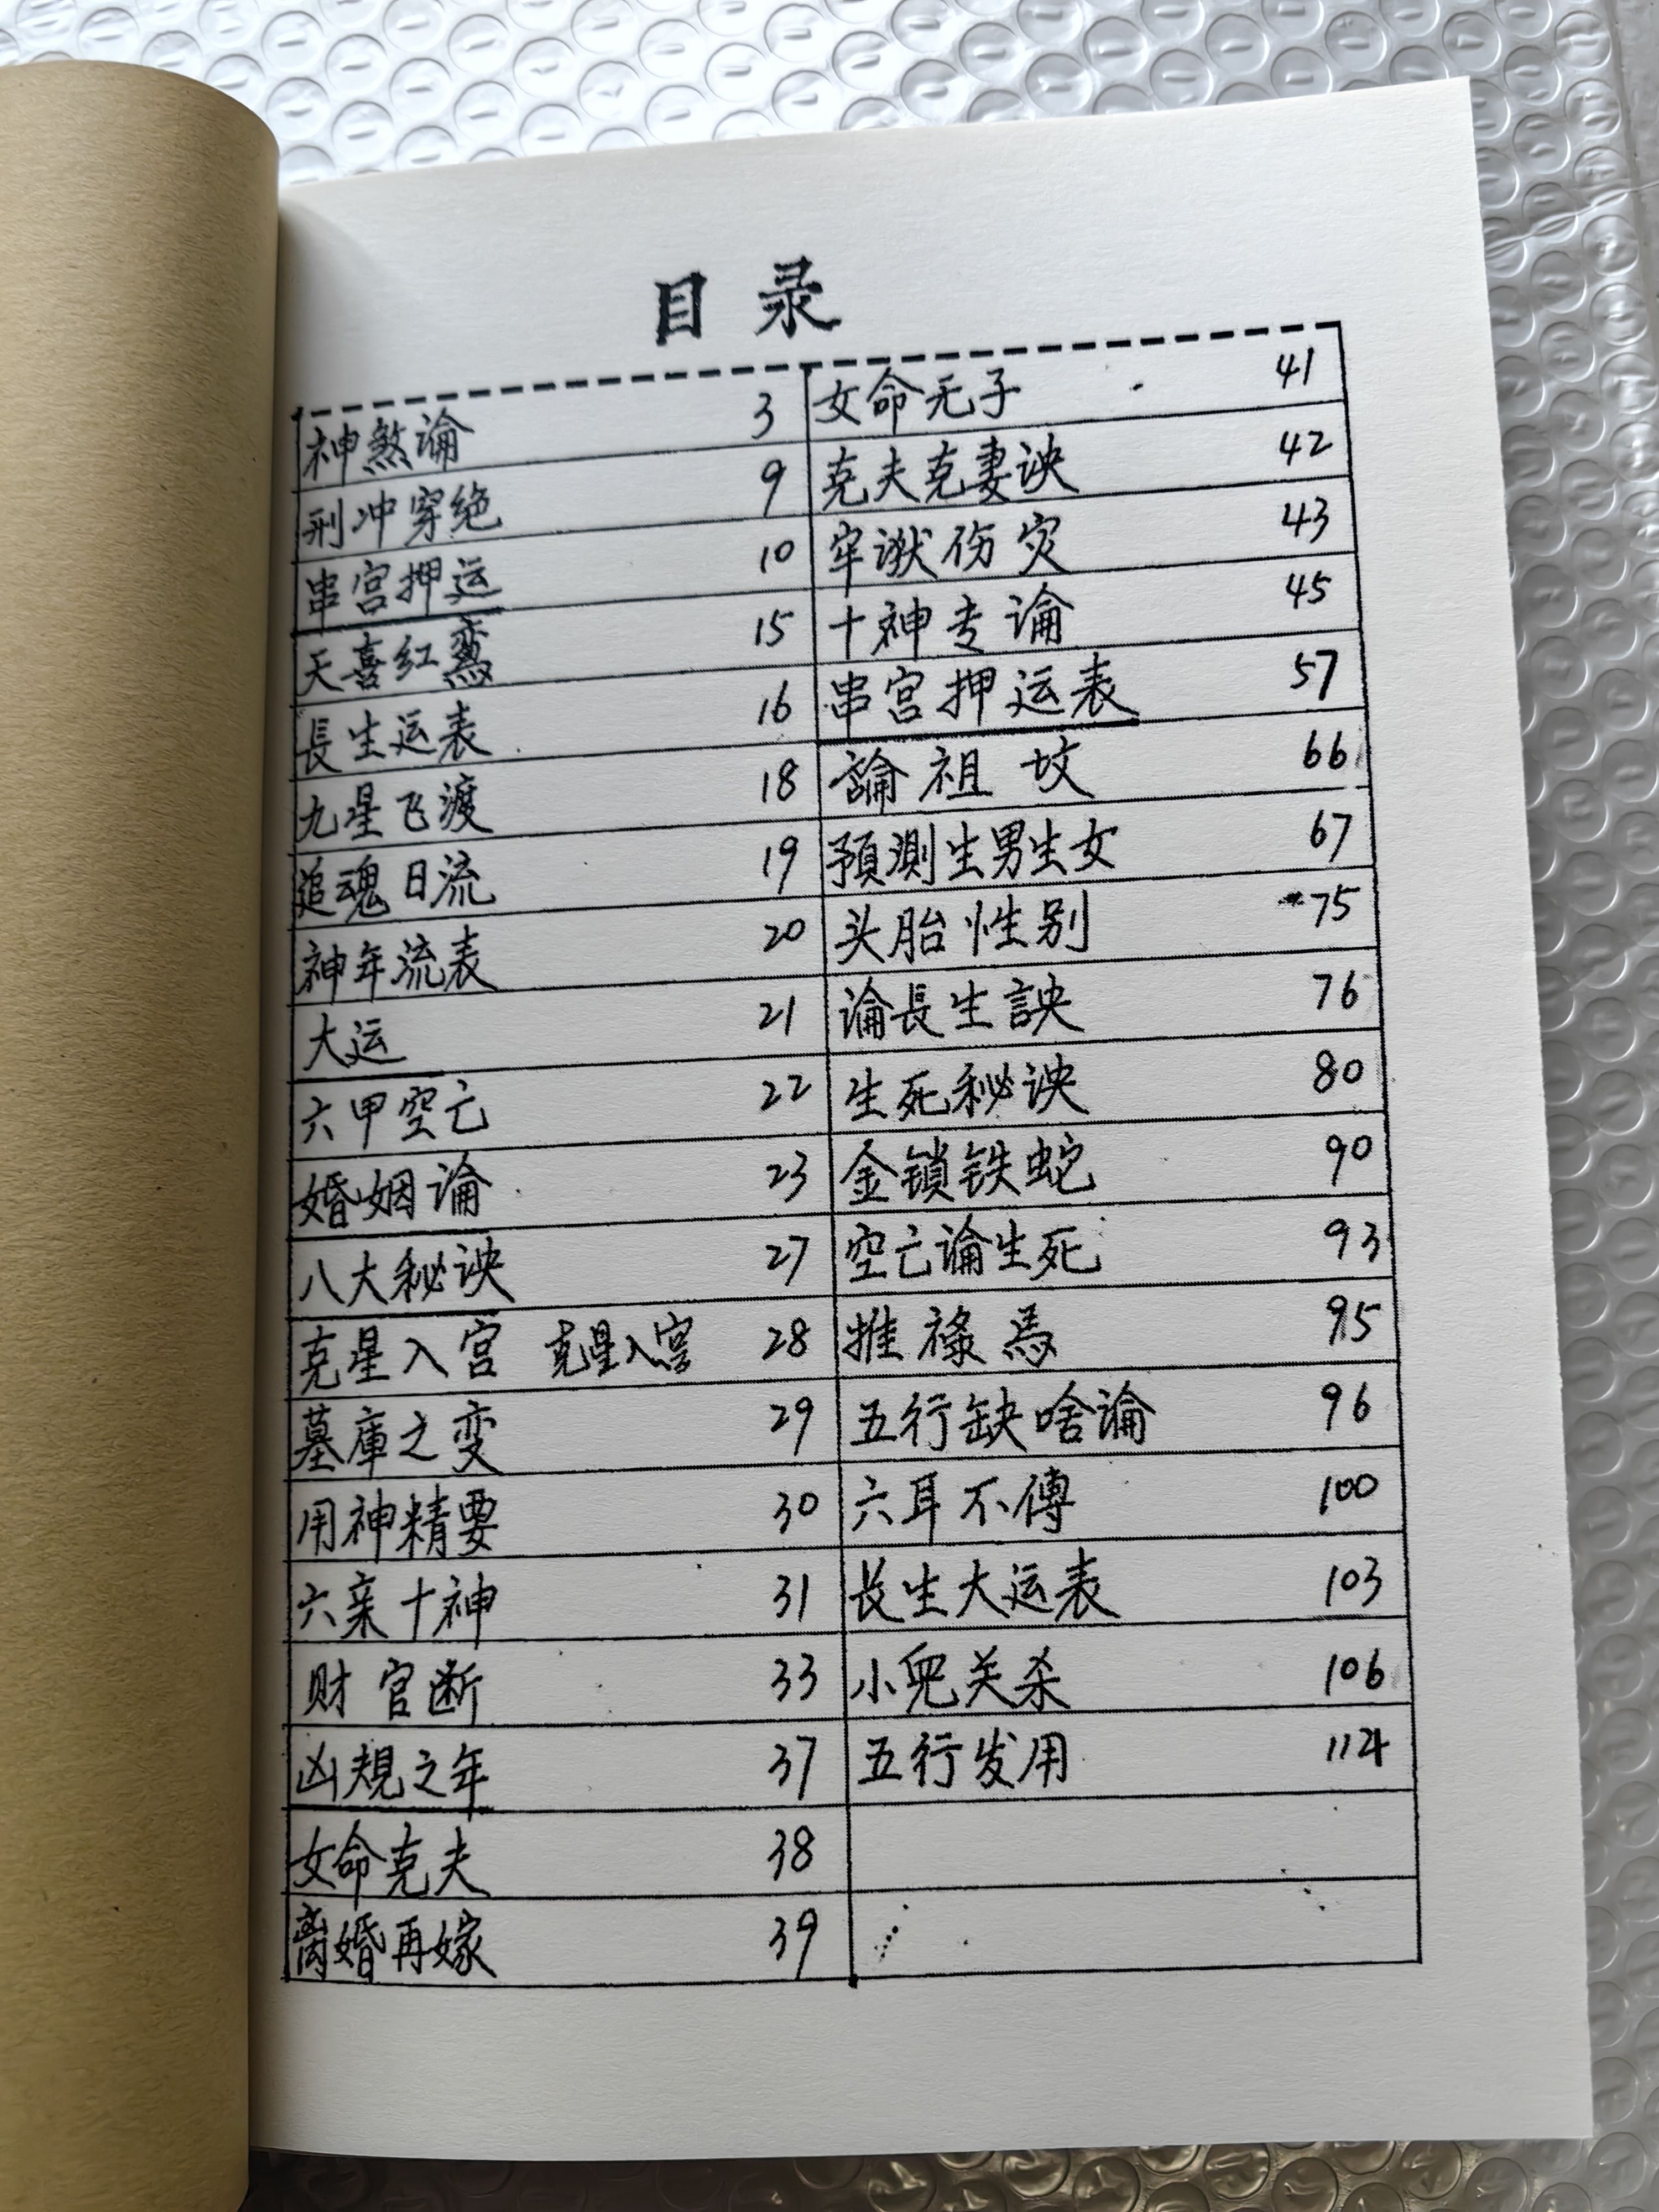 目录
神煞論 3
刑冲穿绝 9
串宫押运 10
天喜红鸾 15
長生运表 16
九星飞渡 18
追魂日流 19
神年流表 20
大运 21
六甲空亡 22
婚姻論 23
八大秘诀 27
克星入宫 克星入宫 28
墓庫之变 29
用神精要 30
六亲十神 31
财官断 33
凶規之年 37
女命克夫 38
离婚再嫁 39
女命无子 41
克夫克妻诀 42
牢狱伤灾 43
十神专論 45
串宫押运表 57
論祖坟 66
預測生男生女 67
头胎性别 75
論長生訣 76
生死秘诀 80
金锁铁蛇 90
空亡論生死 93
推祿馬 95
五行缺啥論 96
六耳不傳 100
长生大运表 103
小兒关杀 106
五行发用 114